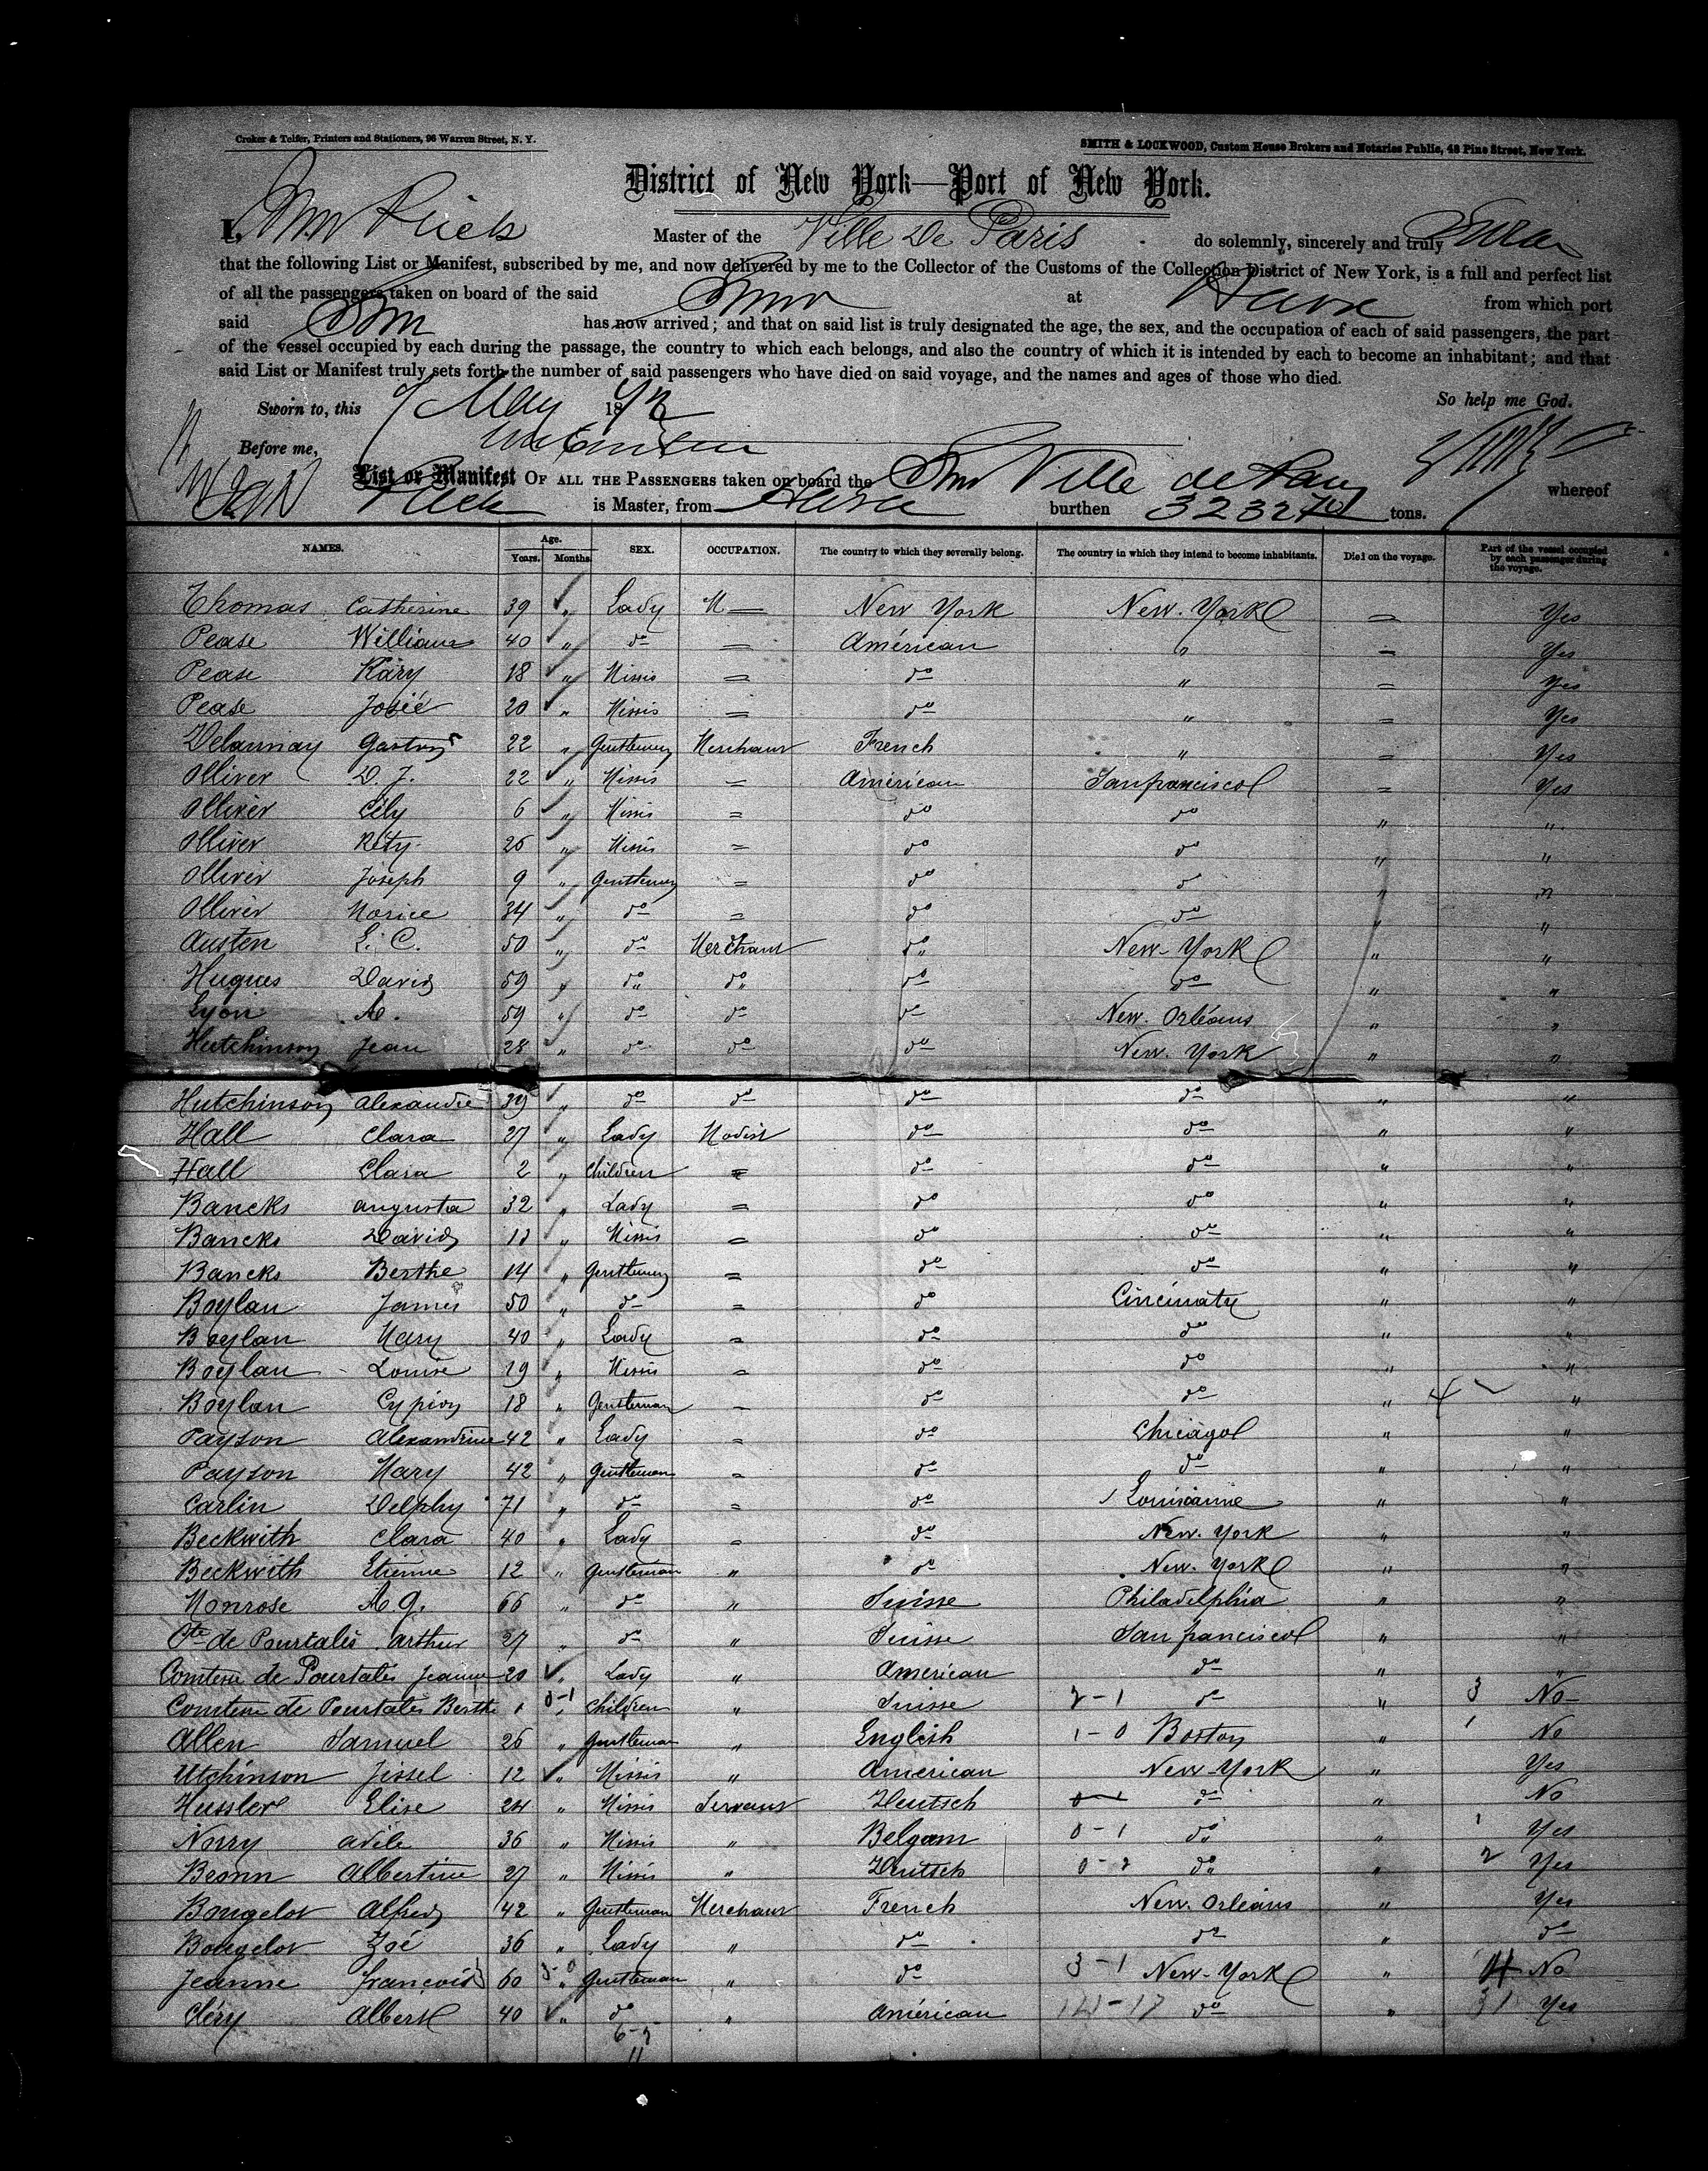 Croker & Telfer, Printers and Stationers, 96 Warren Street, N. Y.
SMITH & LOCKWOOD, Custom House Brokers and Notaries Public, 48 Pine Street, New York.
District of New York—Port of New York.
I, Master of the Ville De Paris do solemnly, sincerely and truly Swear
that the following List or Manifest, subscribed by me, and now delivered by me to the Collector of the Customs of the Collection District of New York, is a full and perfect list
of all the passengers taken on board of the said Stmr at Havre from which port
said Stm has now arrived; and that on said list is truly designated the age, the sex, and the occupation of each of said passengers, the part
of the vessel occupied by each during the passage, the country to which each belongs, and also the country of which it is intended by each to become an inhabitant; and that
said List or Manifest truly sets forth the number of said passengers who have died on said voyage, and the names and ages of those who died.
Sworn to, this May 18 So help me God.
Before me,
List or Manifest OF ALL THE PASSENGERS taken on board the Stmr Ville de Paris whereof
is Master, from Havre burthen tons.
NAMES. Age. Years. Months. SEX. OCCUPATION. The country to which they severally belong. The country in which they intend to become inhabitants. Died on the voyage. Part of the vessel occupied by each passenger during the voyage.
Thomas Catherine 39 " Lady New York New-York = Yes
Pease William 40 " do = Américan " = Yes
Pease Kary 18 " Missis = do " = Yes
Pease Josié 20 " Missis = do " = Yes
Delaunay Gaston 22 " Gentlemen Merchant French " = Yes
Olliver D. J. 22 " Missis = Américan Sanfrancisco = Yes
Olliver Lily 6 " Missis = do do " "
Olliver Kety 26 " Missis = do do " "
Olliver Joseph 9 " Gentlemen = do do " "
Olliver Morice 34 " do = do do " "
Austen E. C. 50 " do Merchant do New-York " "
Hugues David 59 " do do do do " "
Lyon A. 59 " do do do New. Orléans " "
Hutchinson Jean 28 " do do do New. York " "
Hutchinson Alexandre 39 " do do do do " "
Hall Clara 27 " Lady Modist do do " "
Hall Clara 2 " Children = do do " "
Bancks Augusta 32 " Lady = do do " "
Bancks David " Missis = do do " "
Bancks Berthe 14 " Gentlemen = do do " "
Boylan James 50 " do = do Cincinnaty " "
Boylan Mary 40 " Lady = do do " "
Boylan Louise 19 " Missis = do do " "
Boylan Cypion 18 " Gentleman = do do " "
Payson Alexandrine 42 " Lady = do Chicágo " "
Payson Mary 42 " Gentleman = do do " "
Carlin Delphy 71 " do = do Louisianne " "
Beckwith Clara 40 " Lady = do New. York " "
Beckwith Etienne 12 " Gentleman " do New-York " "
Monrose A G. 66 " do " Suisse Philadelphia " "
Cte de Pourtalès Arthur 27 " do " Suisse San francisco " "
Comtesse de Pourtalès Jeanne 20 " Lady " American do " "
Comtesse de Pourtalès Berthe 1 0-1 " Children " Suisse 2-1 do " 3 No
Allen Samuel 26 " Gentleman " English 1-0 Boston " 1 No
Utchinson Jessel 12 " Missis " Américan New-York " Yes
Hussler Elise 24 " Missis Servant Deutsch do " No
Norry Adèle 36 " Missis " Belgam 0-1 do " 1 Yes
Bronn Albertine 27 " Missis " Deutsch 0-2 do " 2 Yes
Bougelot Alfred 42 " Gentleman Merchant French New. Orléans " Yes
Bougelot Zoé 36 " Lady " do do " do
Jeanne François 60 3-0 " Gentleman " do 3-1 New-York " 4 No
Cléry Albert 40 " do " Américan 14-17 do " 31 Yes
11